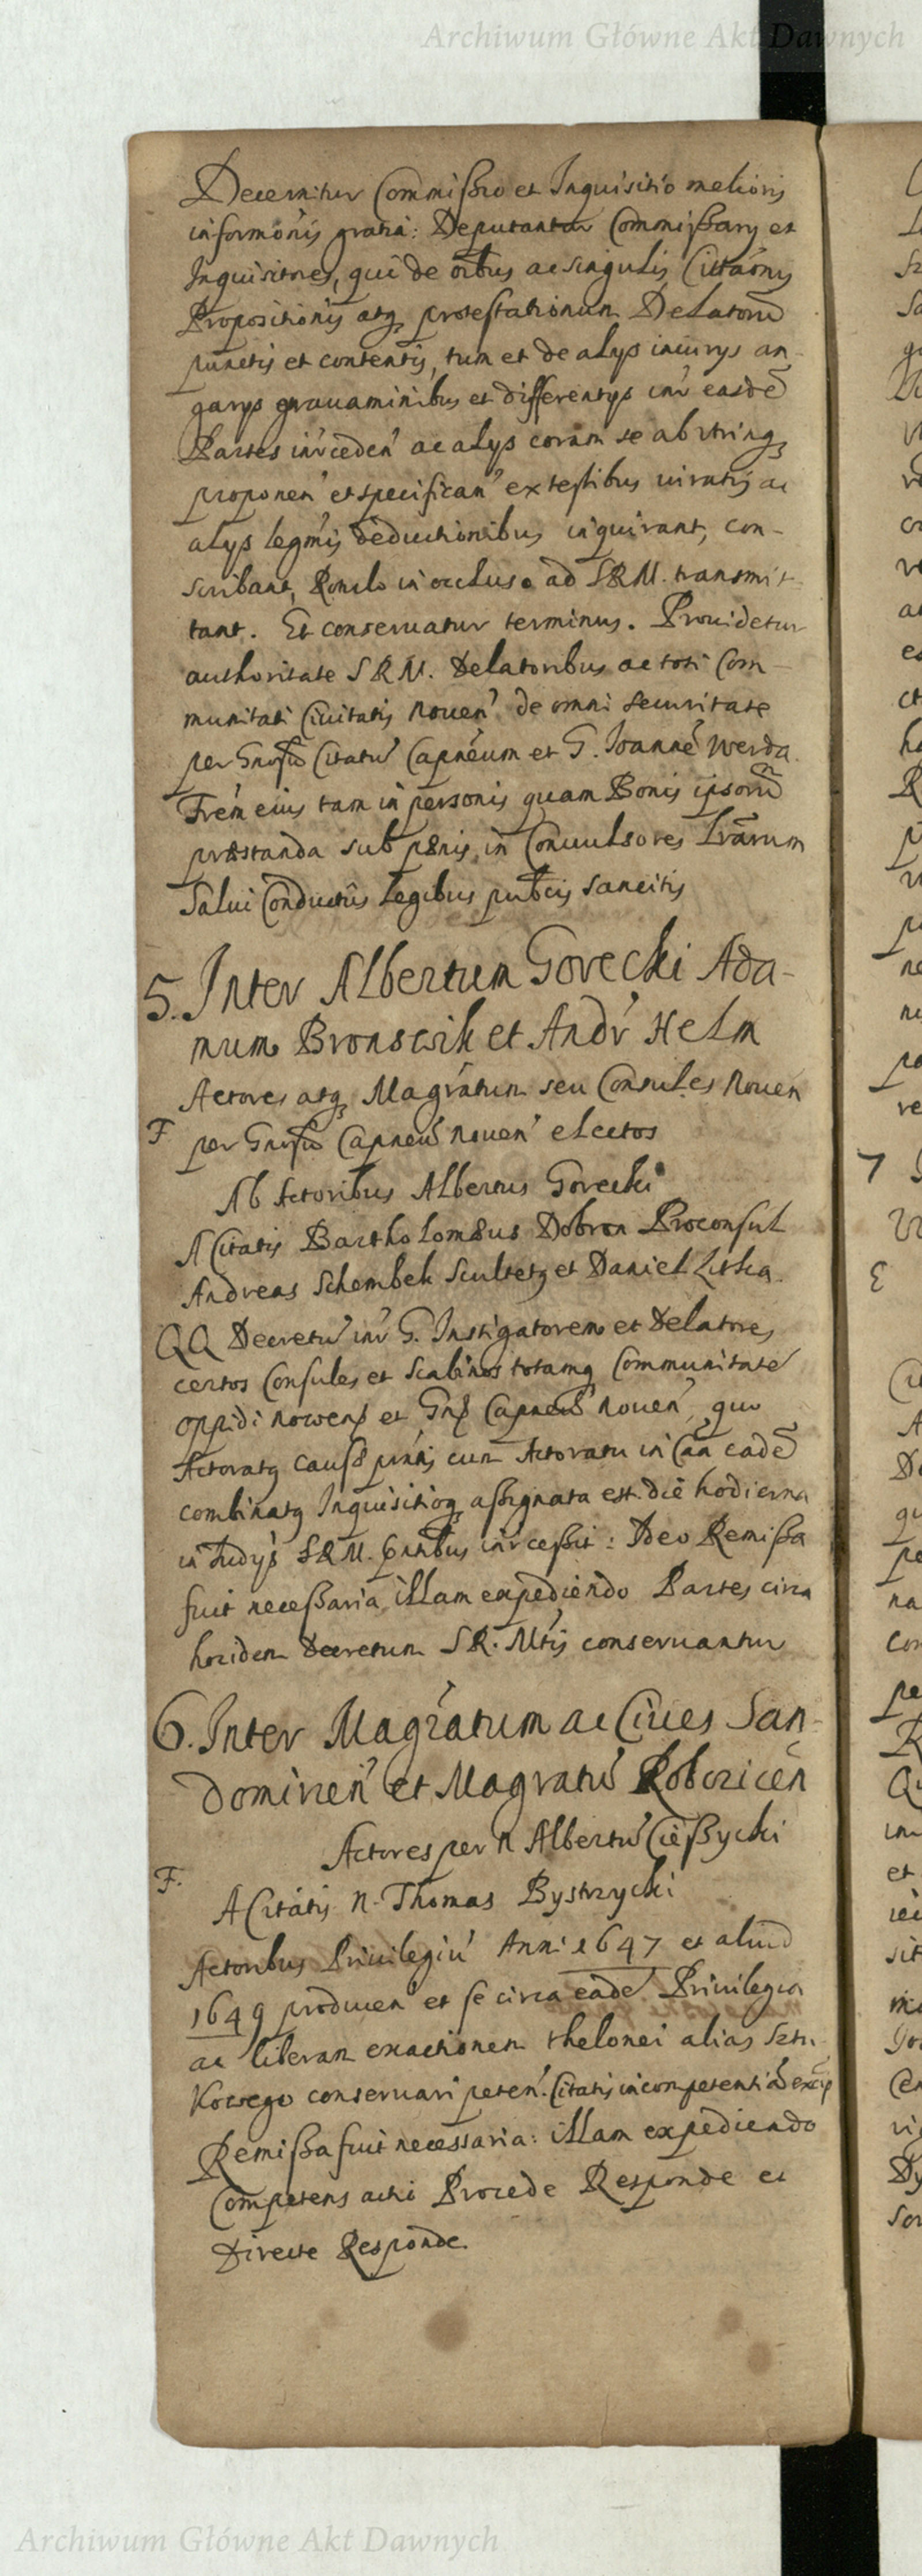 Archiwum Główne Akt Dawnych
Decernitur Commißio et Inquisitio melioris
informōnis gratia: Deputantur Commißary et
Inquisitores, qui de oībus ac singulis Cittāonis
Propositionis atq protestationum Delatorū
punctis et contentis, tum et de alys iniurys an
garys grauaminibus et differentys inr easdē
Partes inrceden ac alys coram se ab utrinq
proponen et specifican ex testibus iuratis ac
alys legmis deductionibus inquirant, con-
scribant, Rotulo in occluso ad S R M. transmit
tant. Et conseruatur terminus. Prouidetur
authoritate S R M. Delatoribus ac toti Com-
munitati Ciuitatis Nouen de omni securitate
per Gnrsū Citatū Capneum et G. Joannē Werda
Frem eius tam in personis quam Bonis ipsorū
præstanda sub pænis in Conuulsores Lrārum
Salui Conductûs legibus pubcis sancitis
5. Inter Albertum Gorecki Ada-
mum Bronswik et Andr Helm
Actores atq Magratum seu Consules Nouen
F per Gnrsū Capneū Nouen electos
Ab Actoribus Albertus Gorecki
A Citatis Bartholomæus Dobron Proconsul
Andreas Schembek Scultetq et Daniel Liska
QQ Decretū inr G. Instigatorem et Delatores
certos Consules et Scabinos totamq Communitatē
oppidi et Capneū Nouen, quo
Actoratq causæ pntis cum Actoratu in Cāa eadē
combinatq Inquisitioq aßignata est. die hodierna
in Judys S R M. inrceßit: Ideo Remißa
fuit neceßaria illam expediendo Partes circa
hocidem Decretum S R. Mtis conseruantur
6. Inter Magratum ac Ciues San-
domirien et Magratū Roboricen
Actores per N Albertū Cießycki
F.
A Citatis N. Thomas Bystrzycki
Actoribus Priuilegiū Anni 1647 et aliud
1649 producen et se circa eadē Priuilegia
ac liberam exactionem thelonei alias
kowego conseruari peten. Citatis incompetentiā excip
Remißa fuit necessaria: illam expediendo
Competens acti Procede Responde et
Directe Responde
Archiwum Główne Akt Dawnych